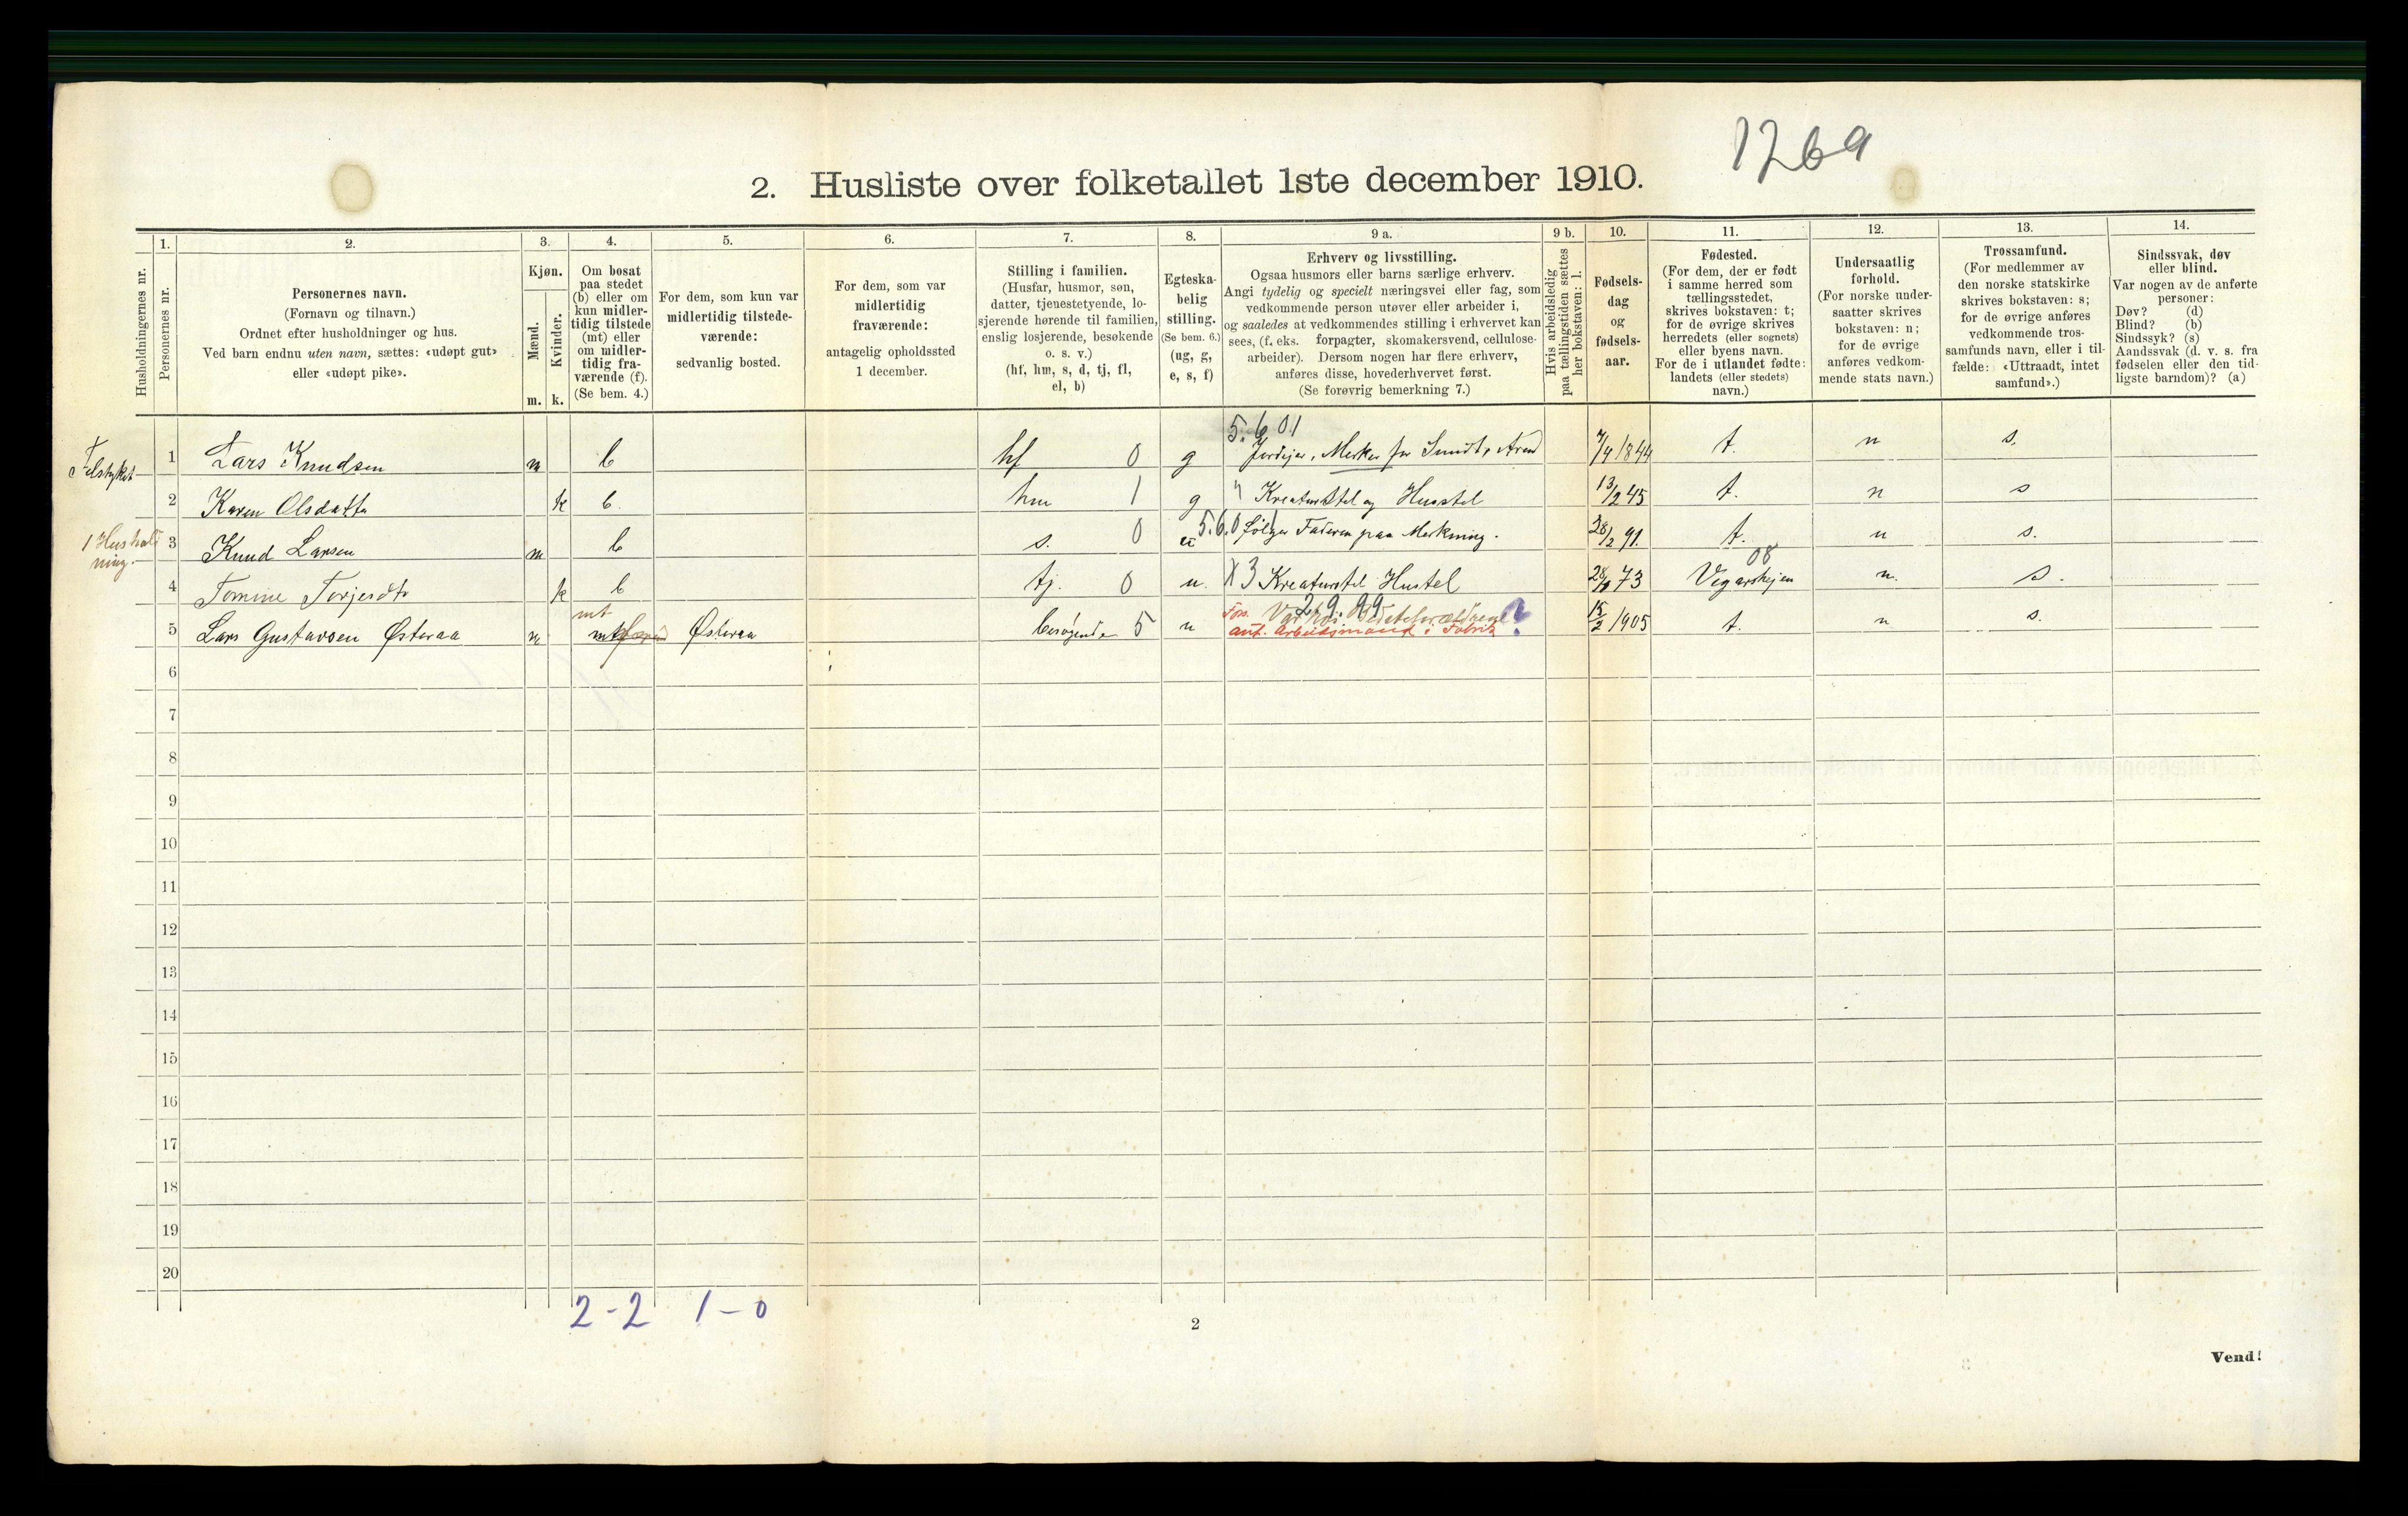 1269
2. Husliste over folketallet 1ste december 1910.
Husholdningernes nr.
1.
Personernes nr.
2.
Personernes navn.
(Fornavn og tilnavn.)
Ordnet efter husholdninger og hus.
Ved barn endnu uten navn, sættes: «udøpt gut»
eller «udøpt pike».
3.
Kjøn.
Mænd.
Kvinder.
m. k.
4.
Om bosat
paa stedet
(b) eller om
kun midler-
tidig tilstede
(mt) eller
om midler-
tidig fra-
værende (f).
(Se bem. 4.)
5.
For dem, som kun var
midlertidig tilstede-
værende:
sedvanlig bosted.
6.
For dem, som var
midlertidig
fraværende:
antagelig opholdssted
1 december.
7.
Stilling i familien.
(Husfar, husmor, søn,
datter, tjenestetyende, lo-
sjerende hørende til familien,
enslig losjerende, besøkende
o. s. v.)
(hf, hm, s, d, tj, fl,
el, b)
8.
Egteska-
belig
stilling.
(Se bem. 6.)
(ug, g,
e, s, f)
9 a.
Erhverv og livsstilling.
Ogsaa husmors eller barns særlige erhverv.
Angi tydelig og specielt næringsvei eller fag, som
vedkommende person utøver eller arbeider i,
og saaledes at vedkommendes stilling i erhvervet kan
sees, (f. eks. forpagter, skomakersvend, cellulose-
arbeider). Dersom nogen har flere erhverv,
anføres disse, hovederhvervet først.
(Se forøvrig bemerkning 7.)
9 b.
Hvis arbeidsledig
paa tællingstiden sættes
her bokstaven: l.
10.
Fødsels-
dag
og
fødsels-
aar.
11.
Fødested.
(For dem, der er født
i samme herred som
tællingsstedet,
skrives bokstaven: t;
for de øvrige skrives
herredets (eller sognets)
eller byens navn.
For de i utlandet fødte:
landets (eller stedets)
navn.)
12.
Undersaatlig
forhold.
(For norske under-
saatter skrives
bokstaven: n;
for de øvrige
anføres vedkom-
mende stats navn.)
13.
Trossamfund.
(For medlemmer av
den norske statskirke
skrives bokstaven: s;
for de øvrige anføres
vedkommende tros-
samfunds navn, eller i til-
fælde: «Uttraadt, intet
samfund».)
14.
Sindssvak, døv
eller blind.
Var nogen av de anførte
personer:
Døv? (d)
Blind? (b)
Sindssyk? (s)
Aandssvak (d. v. s. fra
fødselen eller den tid-
ligste barndom)? (a)
5.6 01
1 Lars Knudsen m b hf 0 g Jordejer, Merker for Smidt, 7/4 1844 t. n s.
2 Karen Olsdatter k b. hm 1 g " Kreaturstel og Husstel 13/2 45 t. n s
1 Hushold
ning.
3 Knud Larsen m b s. 0 5.6.0 følger Faderen paa Merkning. 28/2 91. t. n s.
08
4 Tomine Torjesdtr k b tj. 0 u. X 3 Kreaturstel Hustel 73 Vegarshejen n. s.
mt 29.99
5 Lars Gustavsen Østeraa m mt Østeraa besøgende 5 u Fors. ant. Arbeidsmand i Fabrik ? 15/2 1905 t. n s.
6
7
8
9
10
11
12
13
14
15
16
17
18
19
20
2-2 1-0
2
Vend!